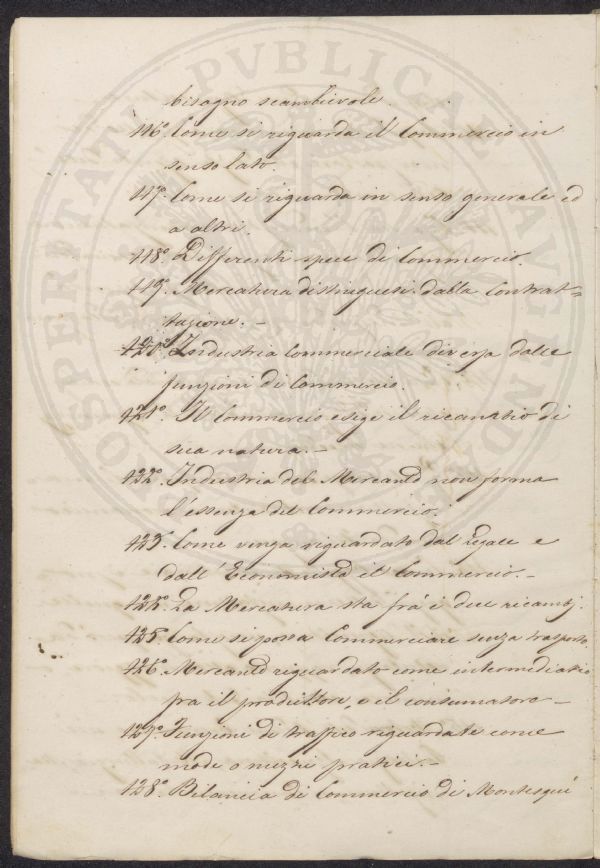 bisogno scambievole.
116.° Come si riguarda il Commercio in
senso lato.
117.° Come si riguarda in senso generale ed
a altri.
118.° Differenti specie di Commercio.
119.° Mercatura distinguesi dalla Contrat=
tazione. -
120.° Industria Commerciale diversa dalle
funzioni di Commercio.
121.° Il Commercio esige il ricambio di
sua natura. -
122.° Industria del Mercante non forma
l'essenza del Commercio.
123.° Come venga riguardato dal legale e
dall'Economista il Commercio. -
124.° La Mercatura sta frà i due ricambj.
125.° Come si possa Commerciare senza trasporto.
126.° Mercante riguardato come intermediario
fra il produttore, e il consumatore -
127.° Funzioni di traffico riguardate come
mode o mezzi pratici. -
128.° Bilancia di Commercio di Montesqui
PROSPERITATI PVBLICAE AVGENDAE